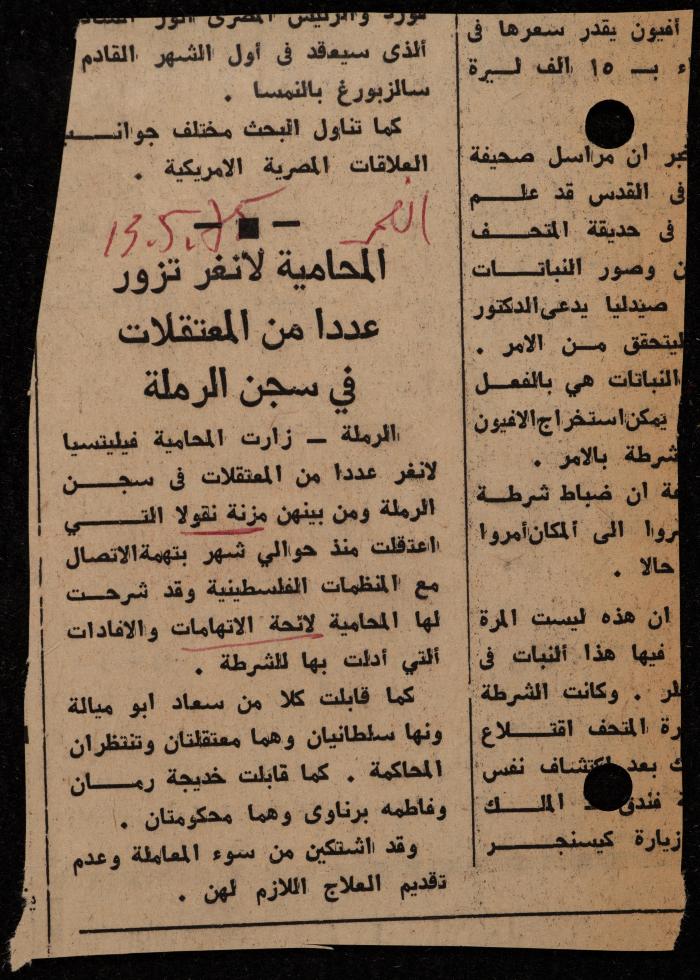 أفيون يقدر سعرها فى
ء بـ ١٥ الف ليرة
خبر ان مراسل صحيفة
فى القدس قد علم
فى حديقة المتحف
ن وصور النباتات
صيدليا يدعى الدكتور
ليتحقق من الامر .
النباتات هي بالفعل
يمكن استخراج الافيون
شرطة بالامر .
ة ان ضباط شرطة
روا الى المكان أمروا
حالا .
ان هذه ليست المرة
فيها هذا النبات فى
وكانت الشرطة
رة المتحف اقتلاع
ك بعد اكتشاف نفس
ة فندق المالك
زيارة كيسنجر
فورد والرئيس المصرى انور
ألذى سيعقد فى أول الشهر القادم
سالزبورغ بالنمسا .
كما تناول البحث مختلف جوانب
العلاقات المصرية الامريكية .
13.5.75
المحامية لانغر تزور
عددا من المعتقلات
في سجن الرملة
الرملة — زارت المحامية فيليتسيا
لانغر عددا من المعتقلات فى سجن
الرملة ومن بينهن مزنة نقولا التي
اعتقلت منذ حوالي شهر بتهمة الاتصال
مع المنظمات الفلسطينية وقد شرحت
لها المحامية لائحة الاتهامات والافادات
ألتي أدلت بها للشرطة .
كما قابلت كلا من سعاد ابو ميالة
ونها سلطانيان وهما معتقلتان وتنتظران
المحاكمة . كما قابلت خديجة رمان
وفاطمه برناوى وهما محكومتان .
وقد اشتكين من سوء المعاملة وعدم
تقديم العلاج اللازم لهن .